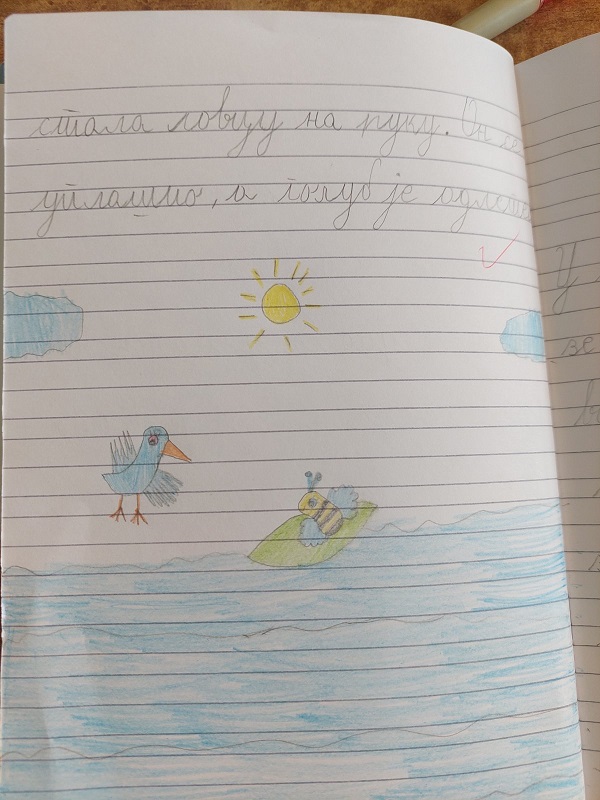 стала ловцу на руку. Он
уплашио, а голуб је
У
зе